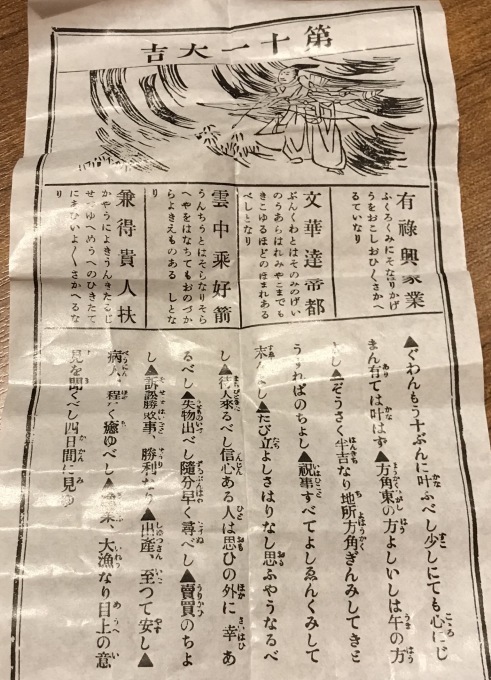 第十一大吉
有祿興家業
ふくろくみにそなりかげ
うをおこしおひ〱さかへ
るていなり
文華達帝都
ぶんくわとはそのみのげい
のうあらはれみやこまでも
きこゆるほどのほまれある
べしとなり
雲中乘好箭
うんちうとはそらなりそら
へやをはなちてもおのづか
らよきえものある しとな
り
兼得貴人扶
かやうによきうんきたるじ
せつゆへめうへのひきたて
にまひいよ〱さかへるな
り
▲ぐわんもう十ぶんに叶ふべし少しにても心にじ
まん有ては叶はず▲方角東の方よしいしは午の方
よし▲ぞうさく半吉なり地所方角ぎんみしてきど
うすればのちよし▲祝事すべてよしゑんぐみして
末よし▲たび立よしさはりなし思ふやうなるべ
し▲待人來るべし信心ある人は思ひの外に幸あ
るべし▲失物出べし隨分早く尋べし▲賣買のちよ
し▲訴訟勝敗事、勝利なり▲出産、至つて安し▲
病人、程なく癒ゆべし▲ 大漁なり目上の意
見を聞くべし四日間に見ゆ